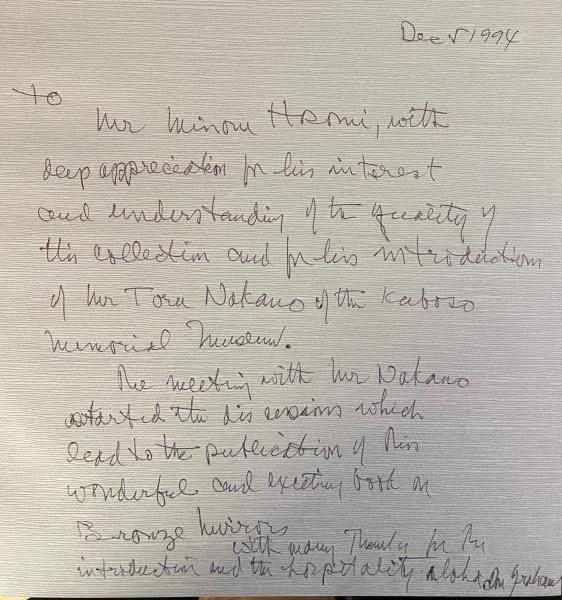 Dec 5 1994
To
Mr Minoru, with
deep appreciation for his interest
and understanding of the quality of
this collection and for his introduction
of Mr Toru Nakano of the Kuboso
Memorial Museum.
The meeting with Mr Nakano
started the discussions which
lead to the publication of this
wonderful and exciting book on
Bronze Mirrors
with many Thanks for the
introduction and the hospitality. Aloha